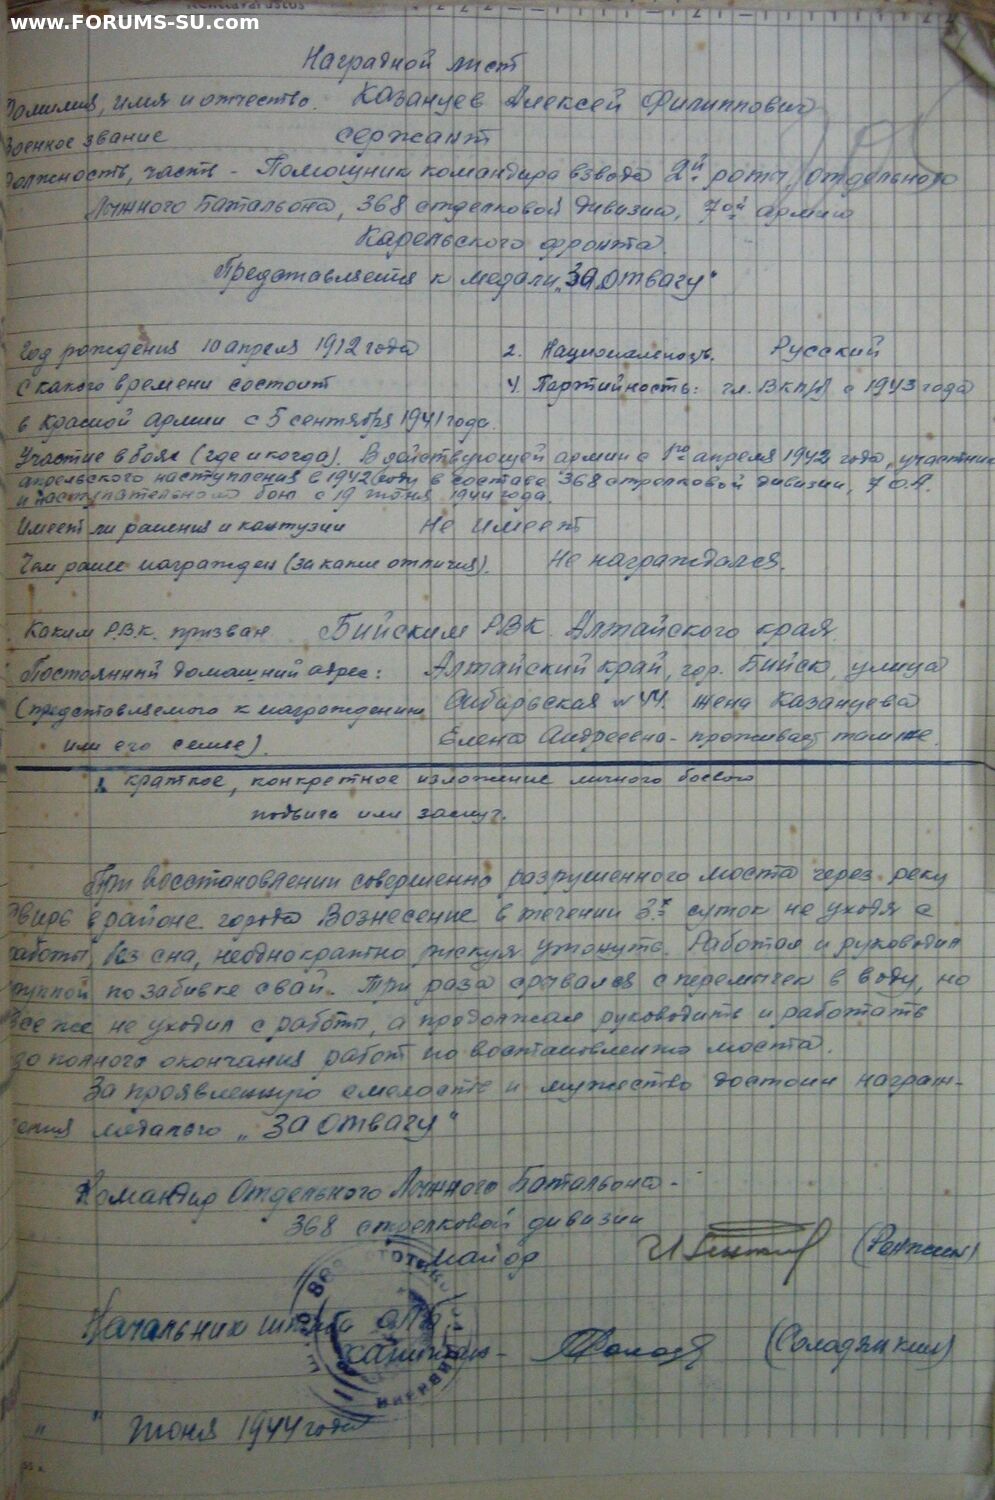 www.FORUMS-SU.com
Kenttävarustus
Наградной лист
Фамилия, имя и отчество. Казанцев Алексей Филиппович
Военное звание сержант
Должность, часть - Помощник командира взвода 2й роты, отдельного
Лыжного Батальона, 368 стрелковой дивизии, 7ой армии
Карельского фронта.
Представляется к медали „За Отвагу"
Год рождения 10 апреля 1912 года 2. Национальность. Русский
С какого времени состоит 4. Партийность: чл. ВКП/б с 1943 года
в Красной Армии с 5 сентября 1941 года.
Участие в боях (где и когда). В действующей армии с 1го апреля 1942 года, участник
апрельского наступления в 1942 году в составе 368 стрелковой дивизии, 7 О.А.
и наступательном бою с 19 июня 1944 года.
Имеет ли ранения и контузии Не имеет
Чем ранее награжден (за какие отличия). Не награждался.
Каким Р.В.К. призван Бийским РВК Алтайского края.
Постоянный домашний адрес: Алтайский край, гор. Бийск, улица
(представляемого к награждению Сибирьская № 44. жена Казанцева
или его семье). Елена Андреевна - проживает там же.
I. краткое, конкретное изложение личного боевого
подвига или заслуг.
При восстановлении совершенно разрушенного моста через реку
Свирь в районе города Вознесение в течении 3х суток не уходя с
работы, без сна, неоднократно рискуя утонуть. Работал и руководил
группой по забивке свай. Три раза срывался с перемычек в воду, но
все же не уходил с работы, а продолжал руководить и работать
до полного окончания работ по восстановлению моста.
За проявленную смелость и мужество достоин награж-
дения медалью „За Отвагу"
Командир Отдельного Лыжного Батальона -
368 стрелковой дивизии
майор
Начальник штаба ОЛБ
капитан - (Солодянкин)
" " июня 1944 года